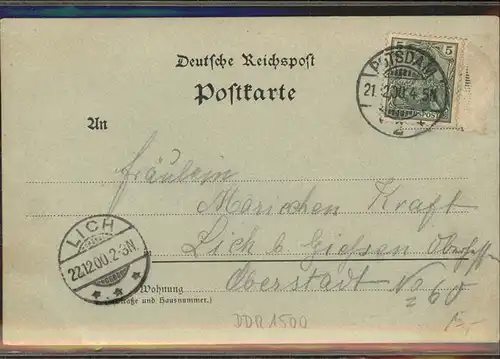 Deutsche Reichspost
Postkarte
5
POTSDAM
21.12.00.4-5N.
2
An
Fräulein
Mariechen Kraft
Lich b. Gießen Oberhessen
Oberstadt No 60
LICH
22.12.00.2-3N.
Wohnung
(Straße und Hausnummer.)
DDR 1500